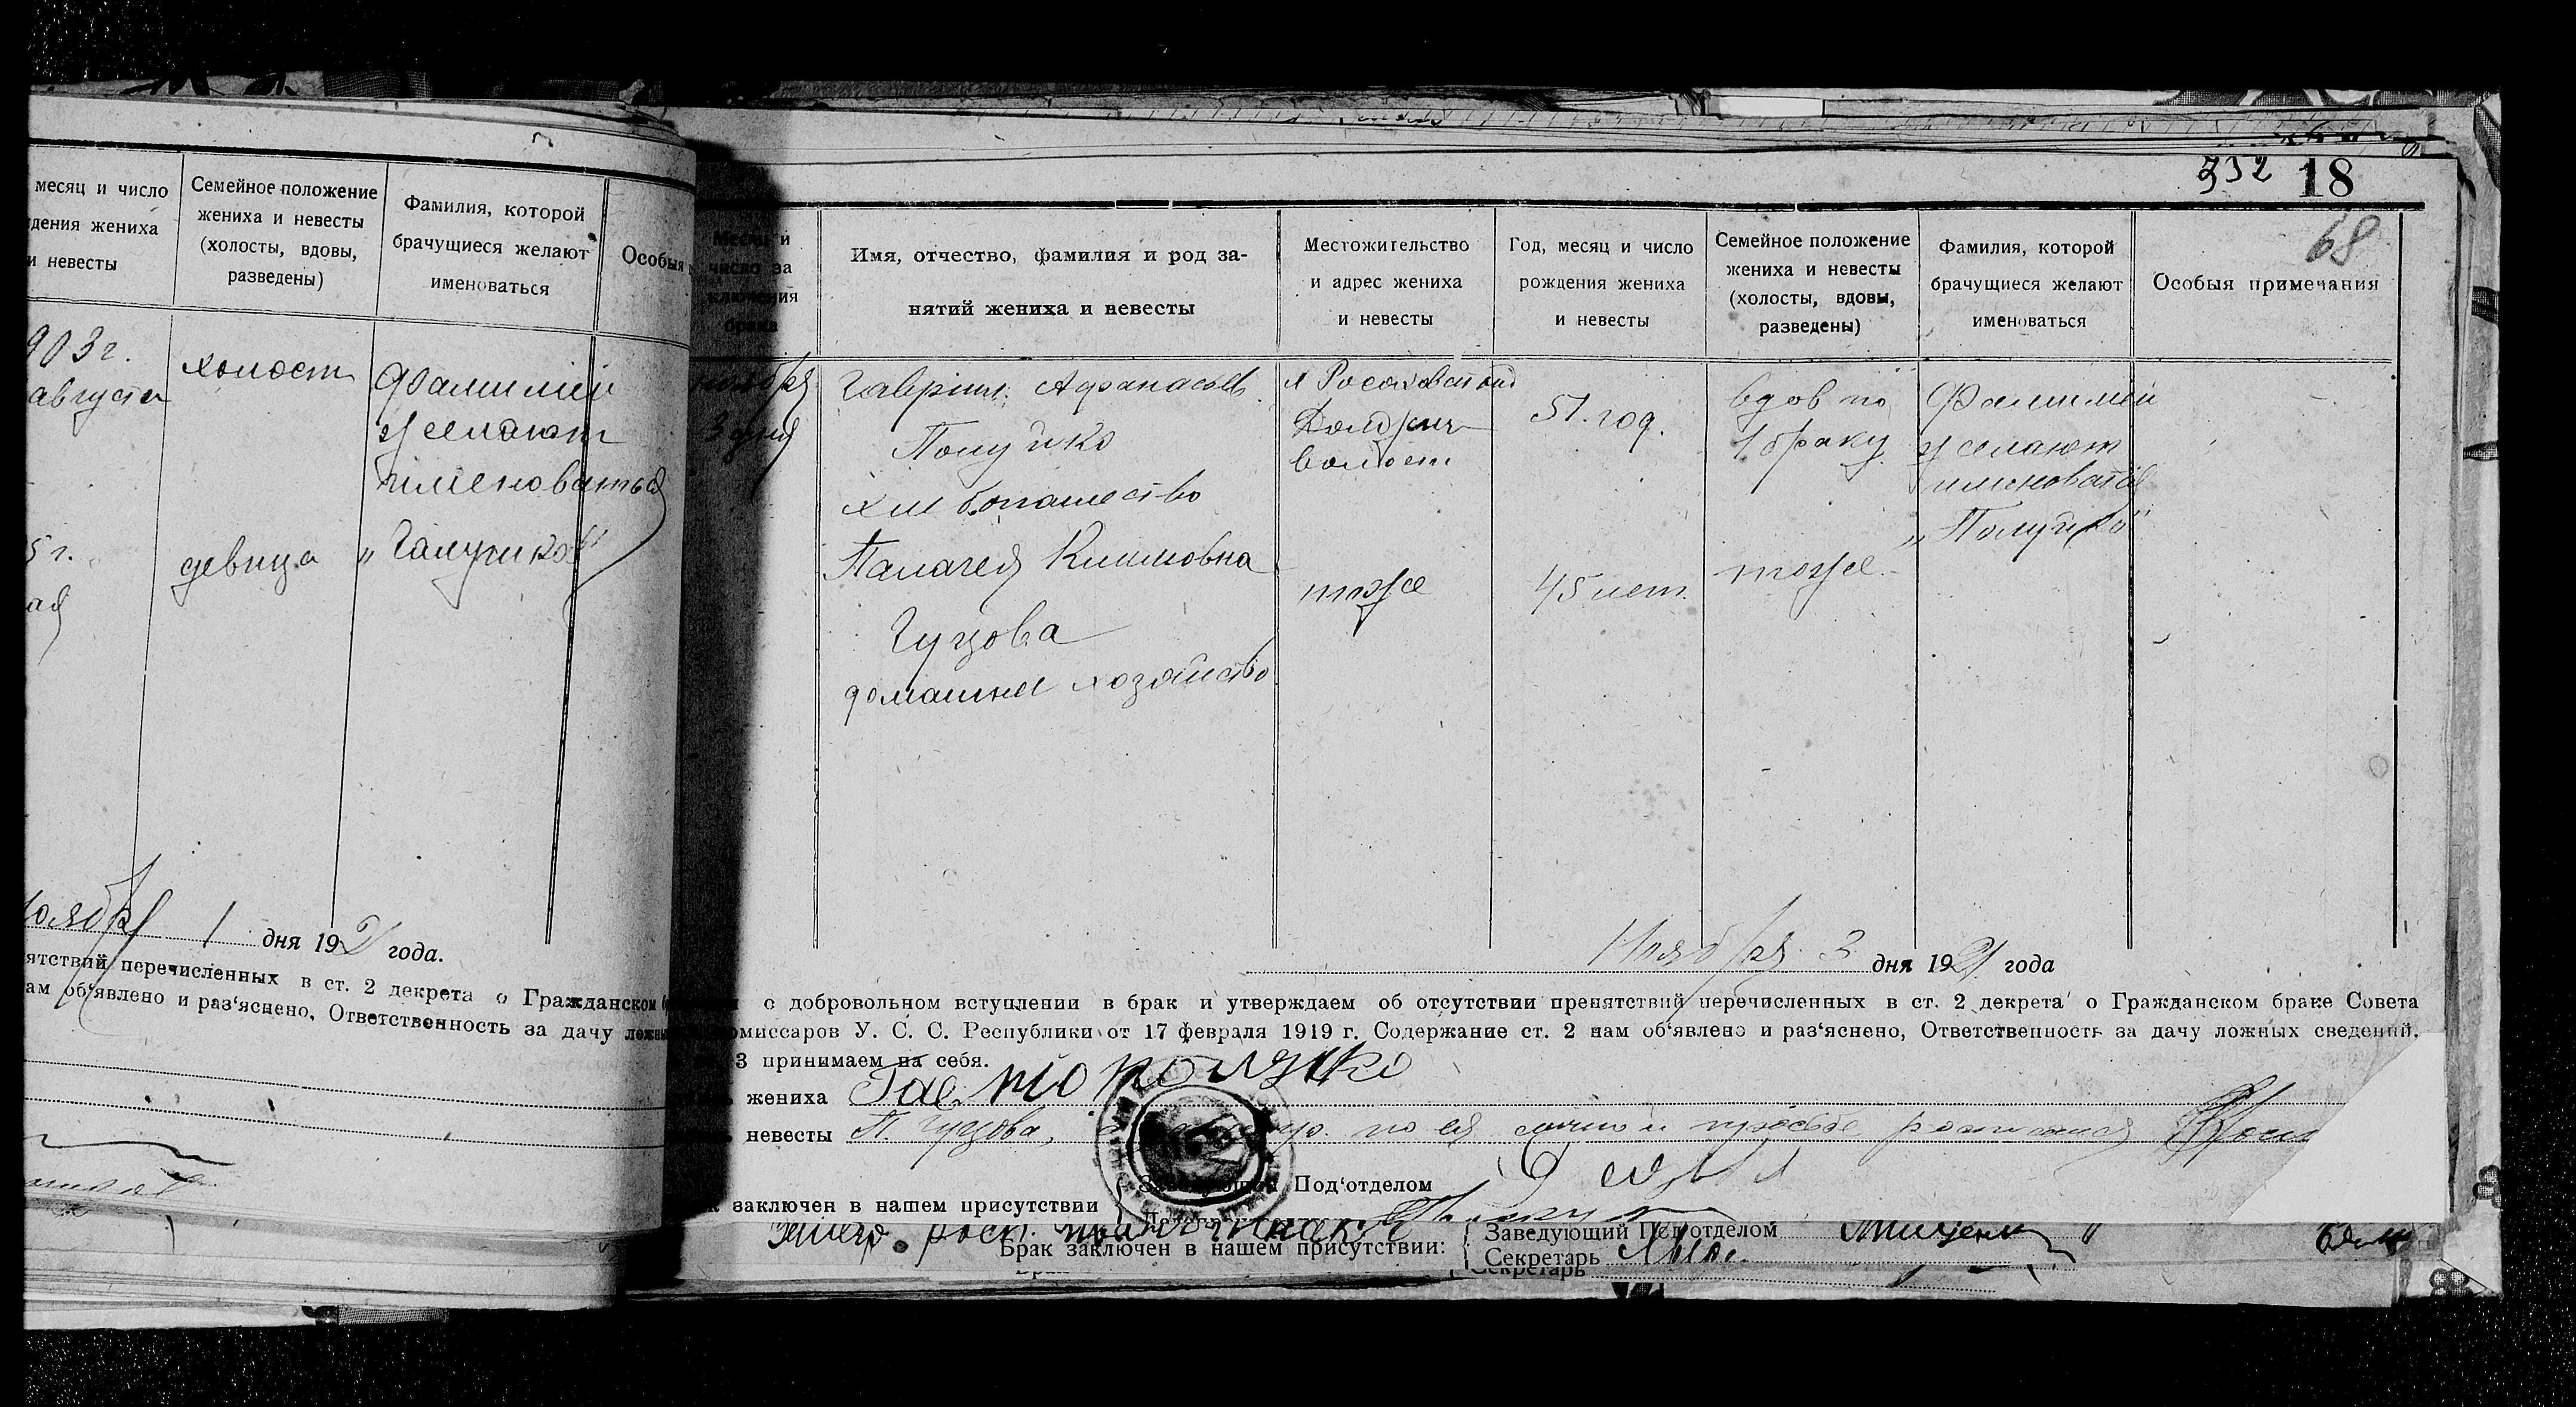 месяц и число
дения жениха
и невесты
Семейное положение
жениха и невесты
(холосты, вдовы,
разведены)
Фамилия, которой
брачущиеся желают
именоваться
Особыя
903 г.
августа
холост
Фамилии
желают
именоваться
5 г.
девица
„Галушко"
ноября 1 дня 192 года.
ятствий перечисленных в ст. 2 декрета о Гражданском
ам об'явлено и раз'яснено, Ответственность за дачу
332 18
68
Месяц и
число за
ключения
брака
Имя, отчество, фамилия и род за-
нятий жениха и невесты
Местожительство
и адрес жениха
и невесты
Год, месяц и число
рождения жениха
и невесты
Семейное положение
жениха и невесты
(холосты, вдовы,
разведены)
Фамилия, которой
брачущиеся желают
именоваться
Особыя примечания
ноября
3 дня
Гавриил Афанасьев
Полушко
хлебопашество
Палагея Климовна
Гугцова
домашнее хозяйство
волост
тоже
51. год.
45 лет.
вдов по
1 браку
тоже.
Фамилии
желают
именоватся
„Полушко"
Ноября 3 дня 1921 года
о добровольном вступлении в брак и утверждаем об отсутствии препятствий перечисленных в ст. 2 декрета о Гражданском браке Совета
омиссаров У. С. С. Республики от 17 февраля 1919 г. Содержание ст. 2 нам об'явлено и раз'яснено, Ответственность за дачу ложных сведений.
3 принимаем на себя.
жениха
невесты П. Гугцова, по ея личной просьбе
Под'отделом
заключен в нашем присутствии
Брак заключен в нашем присутствии:
Заведующий Под'отделом
Секретарь
Секретарь